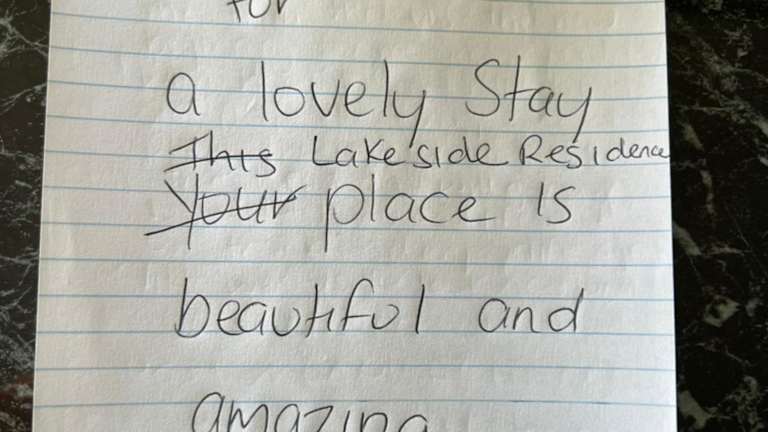 for
a lovely Stay
This Lakeside Residence
Your place is
beautiful and
amazing